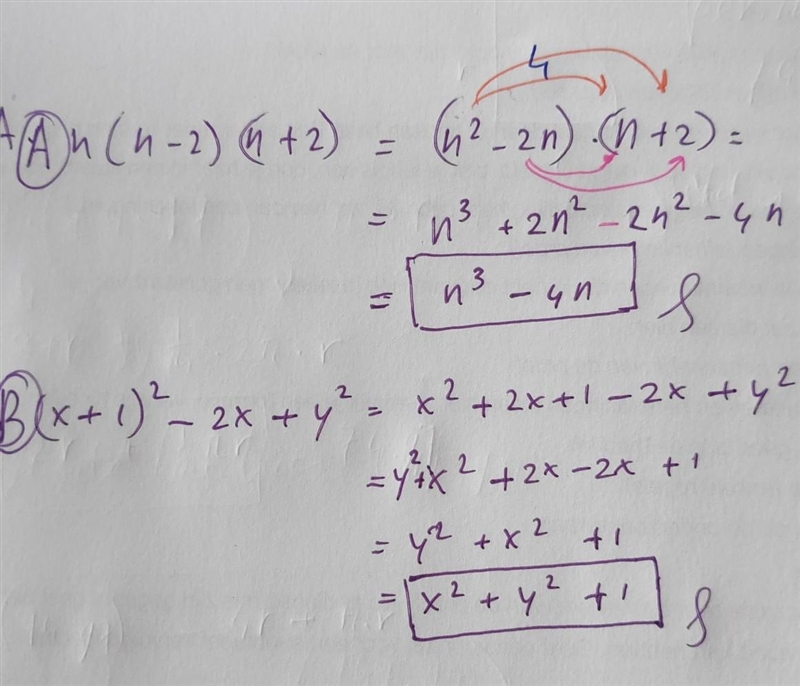 4
A (A) n(n-2)(n+2) = (n² - 2n)·(n+2) =
= n³ + 2n² - 2n² - 4n
= n³ - 4n
(B) (x+1)² - 2x + y² = x² + 2x + 1 - 2x + y²
= y² + x² + 2x - 2x + 1
= y² + x² + 1
= x² + y² + 1